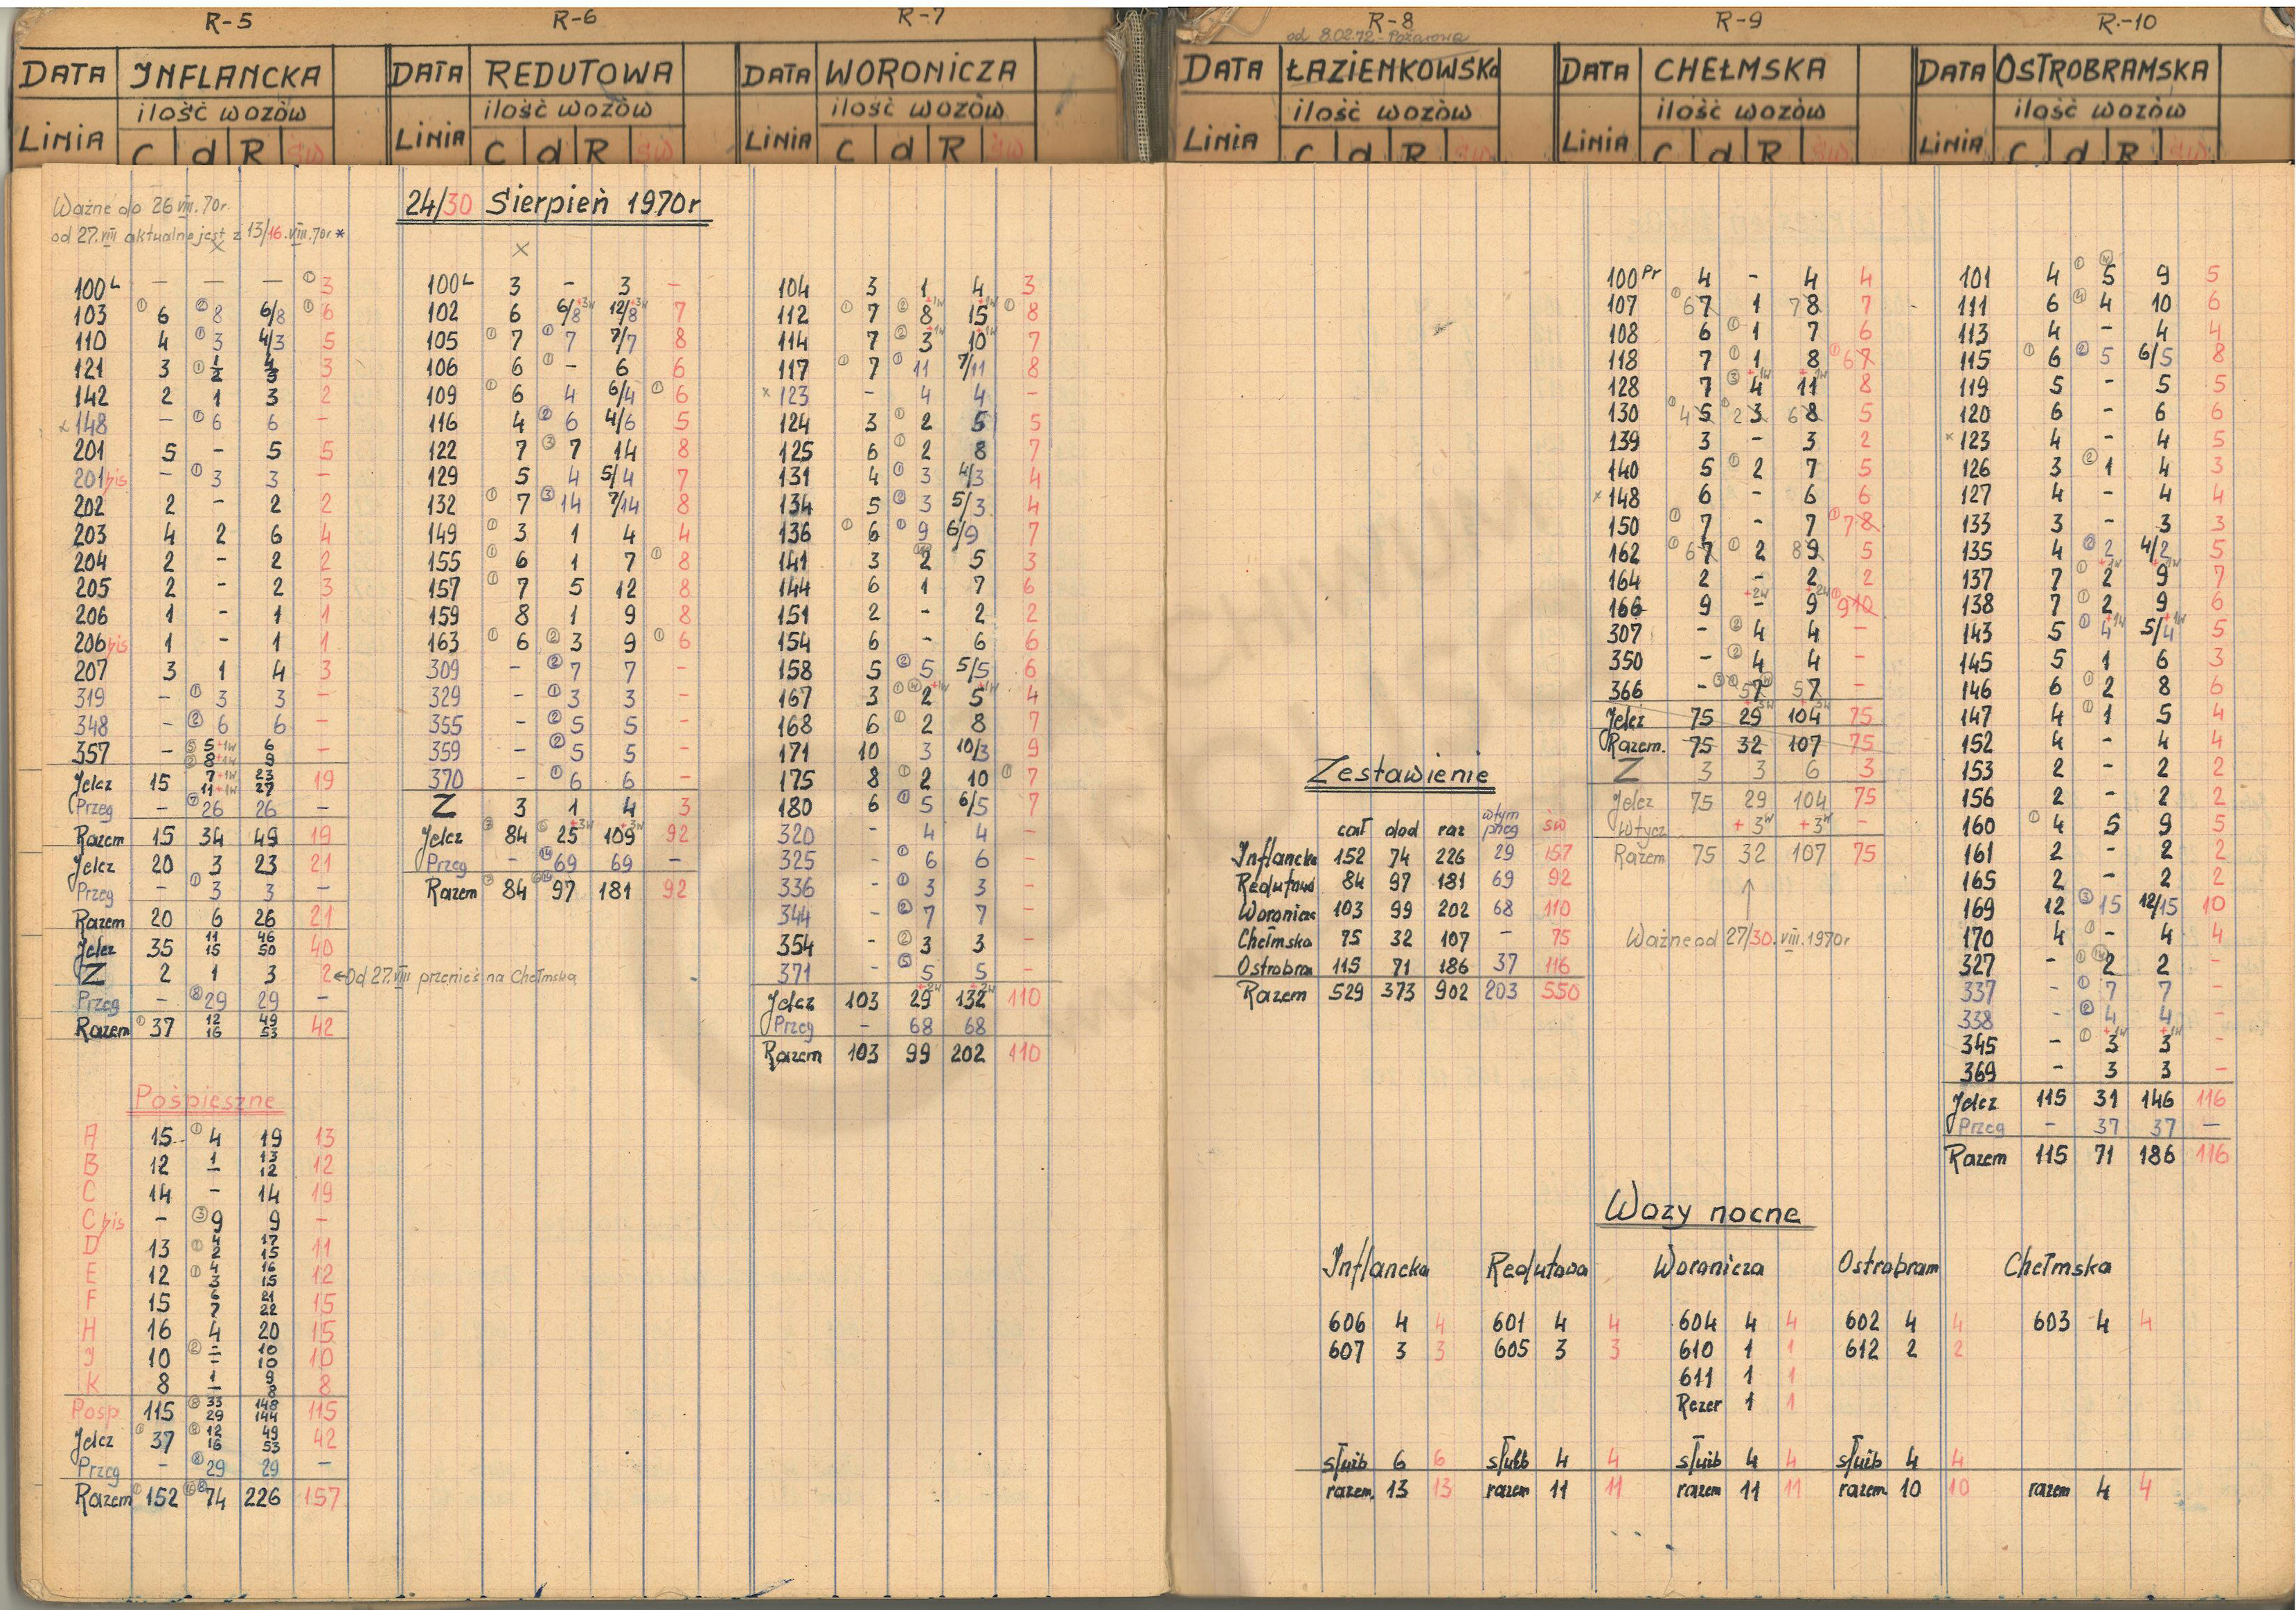 R-5
DATA INFLANCKA
ilość wozòw
LINIA C d R św
Ważne do 26 VIII. 70r.
od 27.VIII aktualne jest z 13/16.VIII.70r *
x
100L — — — ① 3
103 ① 6 ② 8 6/8 ① 6
110 4 ① 3 4/3 5
121 3 ① 1/2 4/3 3
142 2 1 3 2
x 148 — ① 6 6 —
201 5 - 5 5
201bis — ① 3 3 —
202 2 - 2 2
203 4 2 6 4
204 2 - 2 2
205 2 - 2 3
206 1 - 1 1
206bis 1 - 1 1
207 3 1 4 3
319 - ① 3 3 -
348 - ② 6 6 -
357 - 5+1w 8+1w 6 9 -
Jelcz 15 7+1w 11+1w 23 27 19
Przeg - ⑦ 26 26 -
Razem 15 34 49 19
Jelcz 20 3 23 21
Przeg - ① 3 3 -
Razem 20 6 26 21
Jelcz 35 11 15 46 50 40
Z 2 1 3 2 ←Od 27.VIII przenieś na Chełmska
Przeg - ⑧ 29 29 -
Razem ① 37 12 16 49 53 42
Pośpieszne
A 15 ① 4 19 13
B 12 1 - 13 12 12
C 14 - 14 19
C bis - ③ 9 9 -
D 13 ① 4 2 17 15 11
E 12 ① 4 3 16 15 12
F 15 6 7 21 22 15
H 16 4 20 15
J 10 ② - - 10 10 10
K 8 1 - 9 8 8
Posp 115 33 29 148 144 115
Jelcz ① 37 12 16 49 53 42
Przeg - ⑧ 29 29 -
Razem ① 152 74 226 157
R-6
DATA REDUTOWA
ilość wozòw
LINIA C d R św
24/30 Sierpień 1970r
x
100L 3 - 3 -
102 6 6/8+3w 12/8+3w 7
105 ① 7 ① 7 7/7 8
106 6 ① - 6 6
109 ① 6 4 6/4 ① 6
116 4 ② 6 4/6 5
122 7 ③ 7 14 8
129 5 4 5/4 7
132 ① 7 ③ 14 7/14 8
149 ① 3 1 4 4
155 ① 6 1 7 ① 8
157 ① 7 5 12 8
159 8 1 9 8
163 ① 6 ② 3 9 ① 6
309 - ② 7 7 -
329 - ① 3 3 -
355 - ② 5 5 -
359 - ② 5 5 -
370 - ① 6 6 -
Z 3 1 4 3
Jelcz 84 25+3w 109+3w 92
Przeg - ⑭ 69 69 -
Razem 84 97 181 92
R-7
DATA WORONICZA
ilość wozòw
LINIA C d R św
104 3 1 4 3
112 ① 7 ② 8+1w 15+1w ① 8
114 7 ② 3+1w 10+1w 7
117 ① 7 ① 11 7/11 8
x 123 - 4 4 -
124 3 ① 2 5 5
125 6 ① 2 8 7
131 4 ① 3 4/3 4
134 5 ② 3 5/3 4
136 ① 6 ① 9 6/9 7
141 3 2 5 3
144 6 1 7 6
151 2 - 2 2
154 6 - 6 6
158 5 ② 5 5/5 6
167 3 ① 2+1w 5+1w 4
168 6 ① 2 8 7
171 10 3 10/3 9
175 8 ① 2 10 ① 7
180 6 ① 5 6/5 7
320 - 4 4 -
325 - ① 6 6 -
336 - ① 3 3 -
344 - ② 7 7 -
354 - ② 3 3 -
371 - 5 5 -
Jelcz 103 29+2w 132+2w 110
Przeg - 68 68
Razem 103 99 202 110
R-8
od 8.02.72-Pożarowa
DATA ŁAZIENKOWSKa
ilość wozòw
LINIA C d R św
Zestawienie
cał dod raz wtym przeg św
Inflancka 152 74 226 29 157
Redutowa 84 97 181 69 92
Woronicz 103 99 202 68 110
Chełmska 75 32 107 - 75
Ostrobram 115 71 186 37 116
Razem 529 373 902 203 550
R-9
DATA CHEŁMSKA
ilość wozòw
LINIA C d R św
100Pr 4 - 4 4
107 ① 6 7 1 7 8 7
108 6 ① 1 7 6
118 7 ① 1 8 ① 6 7
128 7 ③ 4+1w 11+1w 8
130 ① 4 5 ① 2 3 6 8 5
139 3 - 3 2
140 5 ① 2 7 5
x 148 6 - 6 6
150 ① 7 - 7 ① 7 8
162 ① 6 7 ① 2 8 9 5
164 2 - 2 2
166 9 -+2w 9+2w ① 9 10
307 - ② 4 4 -
350 - ② 4 4 -
366 - 5 7 5 7 -
Jelcz 75 29+3w 104+3w 75
Razem. 75 32 107 75
Z 3 3 6 3
Jelcz 75 29 104 75
Wtycz +3w +3w -
Razem 75 32 107 75
↑
Ważne od 27/30.VIII.1970r
R.-10
DATA OSTROBRAMSKA
ilość wozòw
LINIA C d R św
101 4 ① 5 9 5
111 6 ④ 4 10 6
113 4 - 4 4
115 ① 6 ② 5 6/5 8
119 5 - 5 5
120 6 - 6 6
x 123 4 - 4 5
126 3 ② 1 4 3
127 4 - 4 4
133 3 - 3 3
135 4 ② 2 4/2 5
137 7 ① 2+1w 9+1w 7
138 7 ① 2 9 6
143 5 ① 4+1w 5/4+1w 5
145 5 1 6 3
146 6 ① 2 8 6
147 4 ① 1 5 4
152 4 - 4 4
153 2 - 2 2
156 2 - 2 2
160 ① 4 5 9 5
161 2 - 2 2
165 2 - 2 2
169 12 ③ 15 12/15 10
170 4 ① - 4 4
327 - ① 2 2 -
337 - ① 7 7 -
338 - ② 4 4 -
345 - ① 3+1w 3+1w -
369 - 3 3 -
Jelcz 115 31 146 116
Przeg - 37 37 -
Razem 115 71 186 116
Wozy nocne
Inflancka Redutowa Woronicza Ostrobram Chełmska
606 4 4 601 4 4 604 4 4 602 4 4 603 4 4
607 3 3 605 3 3 610 1 1 612 2 2
611 1 1
Rezer 1 1
służb 6 6 służb 4 4 służb 4 4 służb 4 4
razem. 13 13 razem 11 11 razem 11 11 razem 10 10 razem 4 4